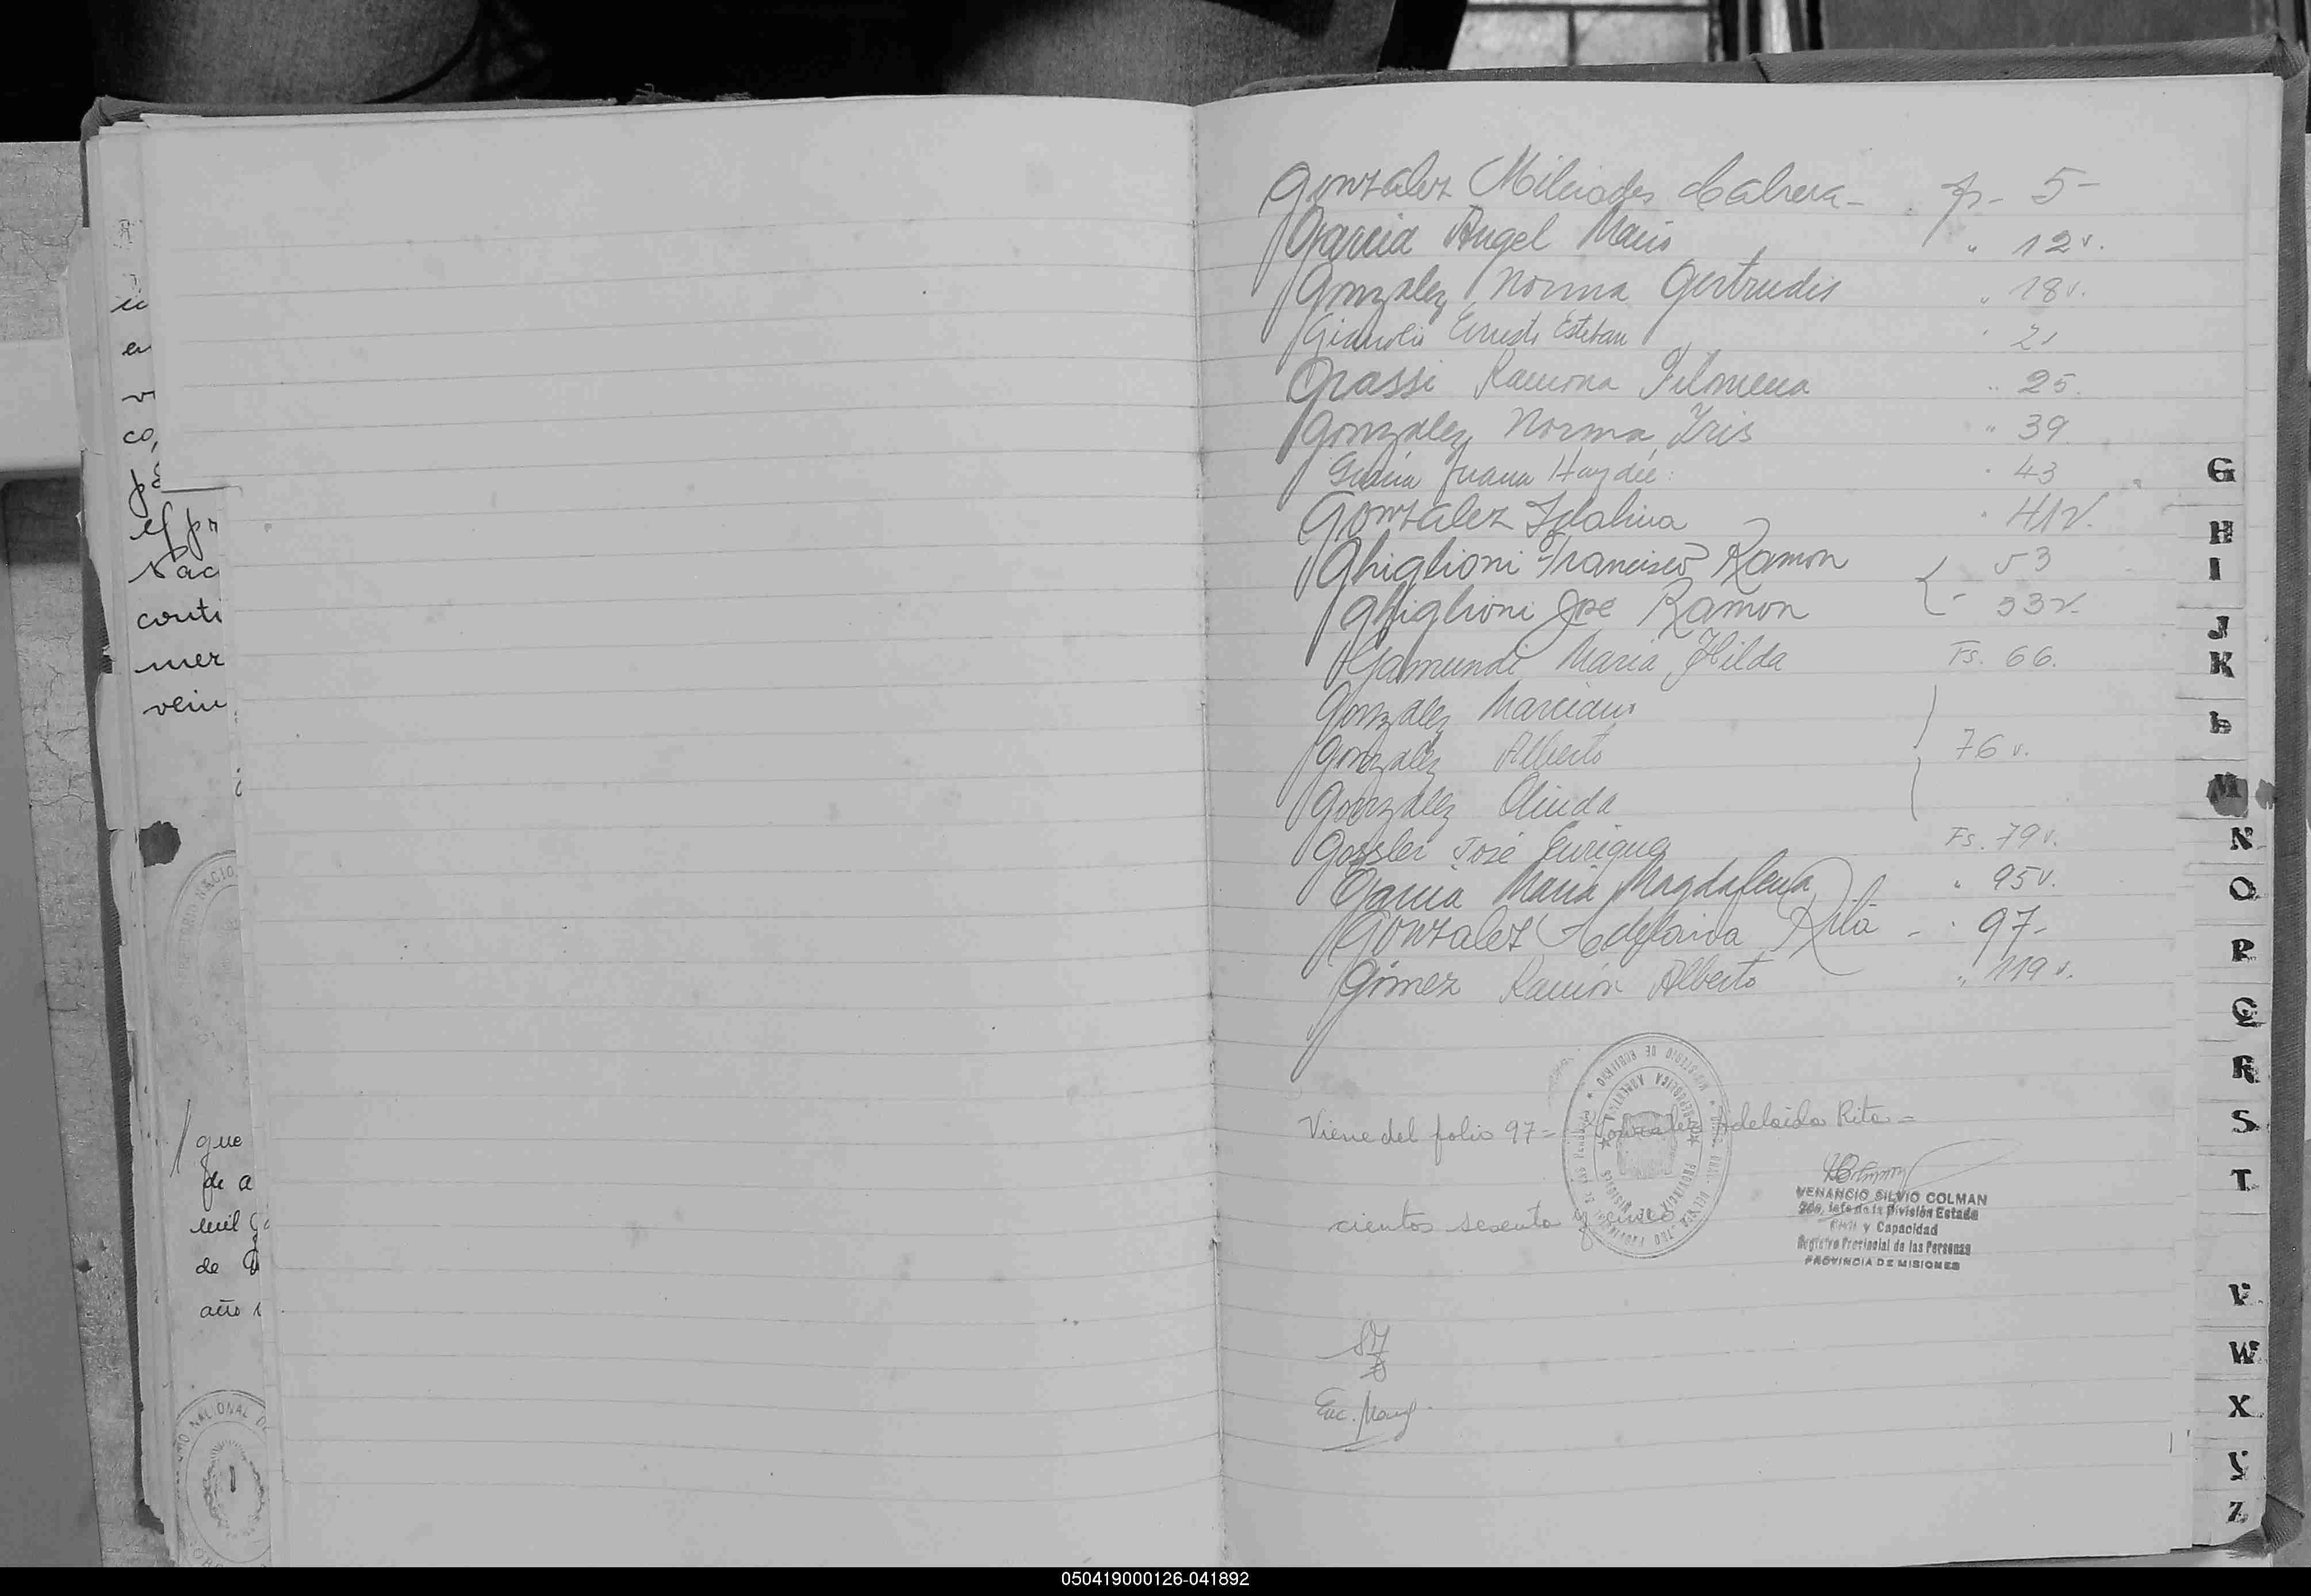 u
en
co,
el pr
sac
conti
mer
vein
que
de a
mil
de
año
NACIO
NACIONAL DE
Gonzalez Milciades Cabrera - fs - 5 -
Garcia Angel Mario " 12 v.
Gonzalez Norma Gertrudis " 18 v.
Ernesto Esteban " 21
Grassi Ramona Filomena " 25.
Gonzalez Norma Iris " 39
Juana Haydée " 43
Gonzalez Idalina " 41 v.
Ghiglioni Francisco Ramon 53
Ghiglioni José Ramon 53 v.
Gamundi Maria Hilda Fs. 66.
Gonzalez Marciano
Gonzalez Alberto 76 v.
Gonzalez Olinda
Gossler José Enrique Fs. 79 v.
Garcia Maria Magdalena " 95 v.
Gonzalez Adelaida Rita - " 97 -
Gómez Ramón Alberto " 119 v.
Viene del folio 97 = Gonzalez Adelaida Rita =
cientos sesenta y cinco
MINISTERIO DE GOBIERNO
REPUBLICA ARGENTINA
PROVINCIA DE MISIONES
VENANCIO SILVIO COLMAN
2do. Jefe de la División Estado
Civil y Capacidad
Registro Provincial de las Personas
PROVINCIA DE MISIONES
G
H
I
J
K
L
M
N
O
P
Q
R
S
T
V
W
X
Y
Z
050419000126-041892